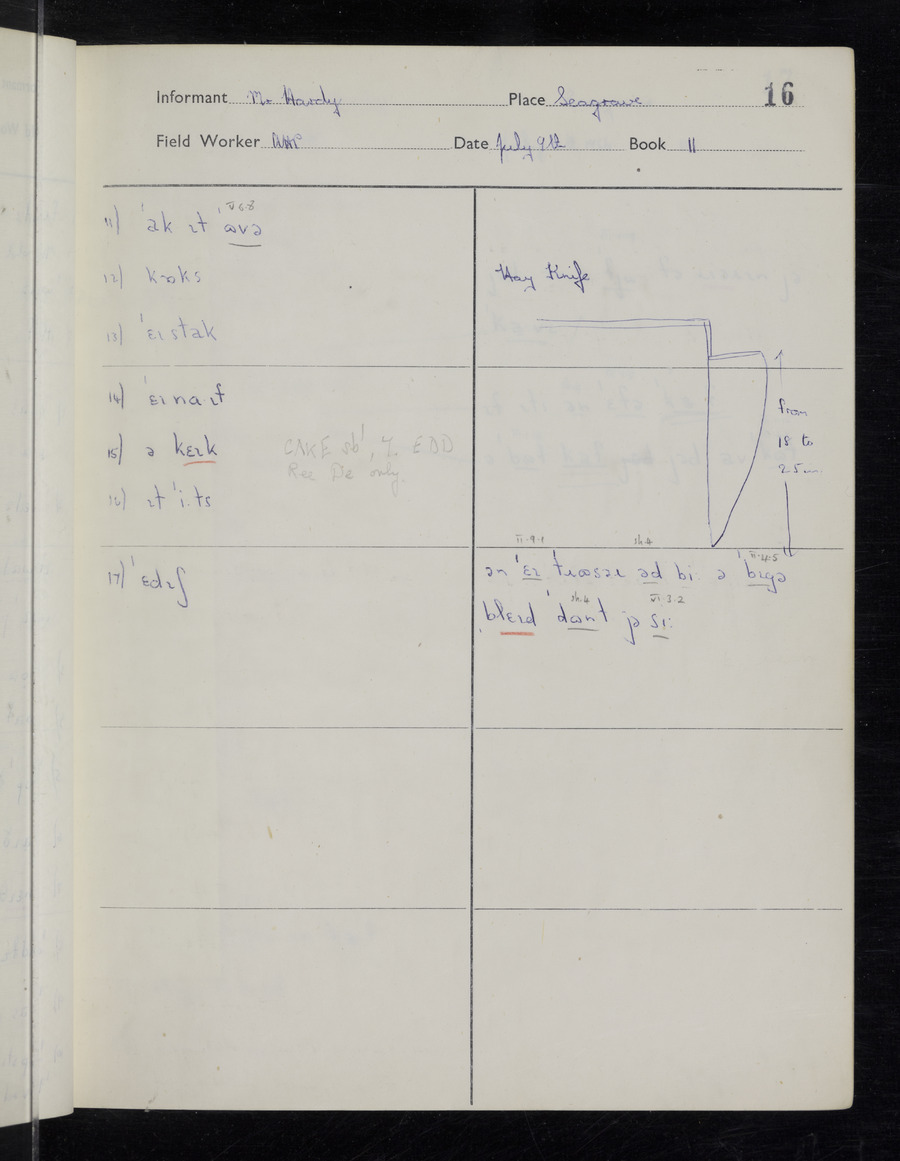 16
Informant Mr Hardy Place Seagrave
Field Worker Date July 9th Book 11
VI.6.8
11) ˈak ɪt ˈɷvə
12) kɒks
13) ˈɛɪstak
14) ˈɛɪnaɪf
15) ə kɛɪk CAKE sb¹, 7. EDD
Rec De only.
16) ɪt ˈi:ts
17) ˈɛdɪʃ
Hay Knife
from
18 to
25
II.9.1 sh.4 II.4.5
ən ˈɛɪ bi: ə ˈbɪgə
sh.4 VI.3.2
blɛɪd ˈdɷnt jə si: